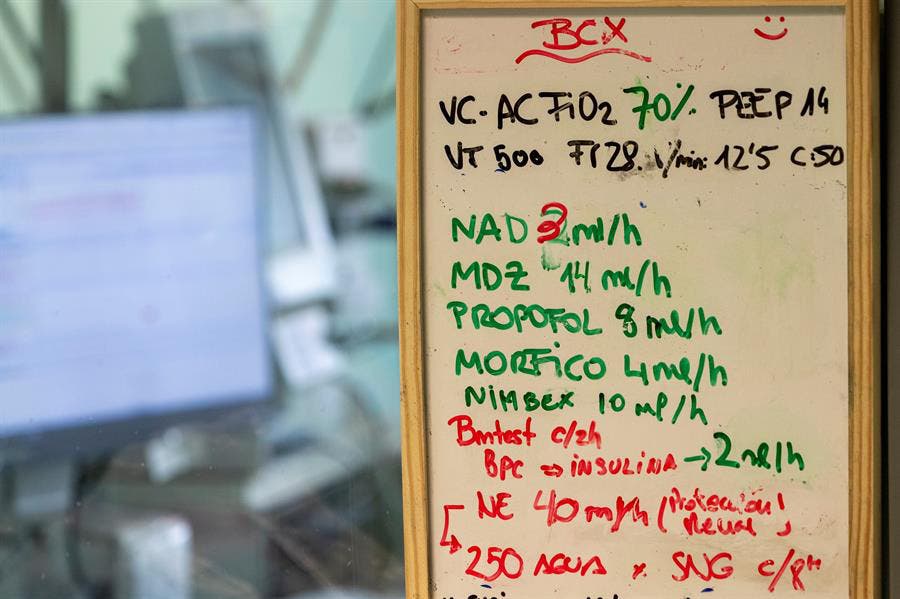 BCX
VC-AC FiO2 70% PEEP 14
VT 500 Fr 28 V/min: 12'5 C:50
NAD 3 ml/h
MDZ 14 ml/h
PROPOFOL 8 ml/h
MORFICO 4 ml/h
NIMBEX 10 ml/h
Bmtest c/2h
BPC ⇒ INSULINA → 2 ml/h
NE 40 ml/h (Protección
Renal)
→ 250 AGUA x SNG c/8H